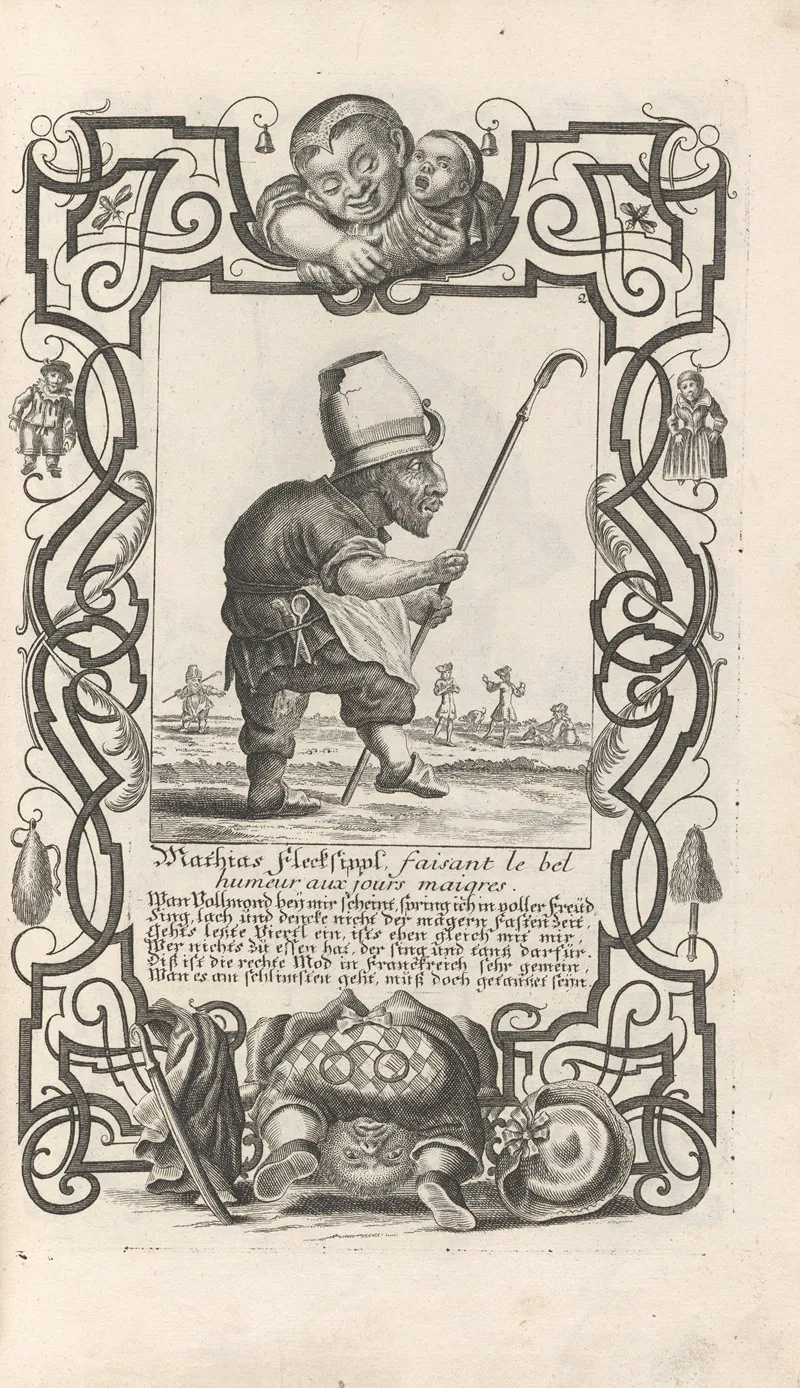 2
Mathias Flecksippl, faisant le bel
humeur aux jours maigres.
Wan Vollmond beÿ mir scheint, spring ich in voller Freüd,
Sing, lach und dencke nicht der magern Fasten Zeit,
Gehts letzte Viertl ein, ists eben gleich mit mir,
Wer nichts zu essen hat, der sing und tantz darfür.
Diß ist die rechte Mod in Franckreich sehr gemein,
Wan es am schlimsten geht, muß doch getantzet seÿn.